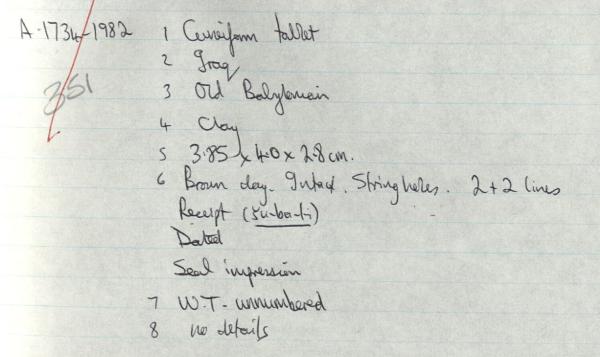 A.1734-1982 1 Cuneiform tablet
2 Iraq
3 Old Babylonian
4 Clay
351
5 3.85 x 4.0 x 2.8 cm.
6 Brown clay. Intact. String holes. 2+2 lines
Receipt (šu-ba-ti)
Dated
Seal impression
7 W.T- unnumbered
8 no details